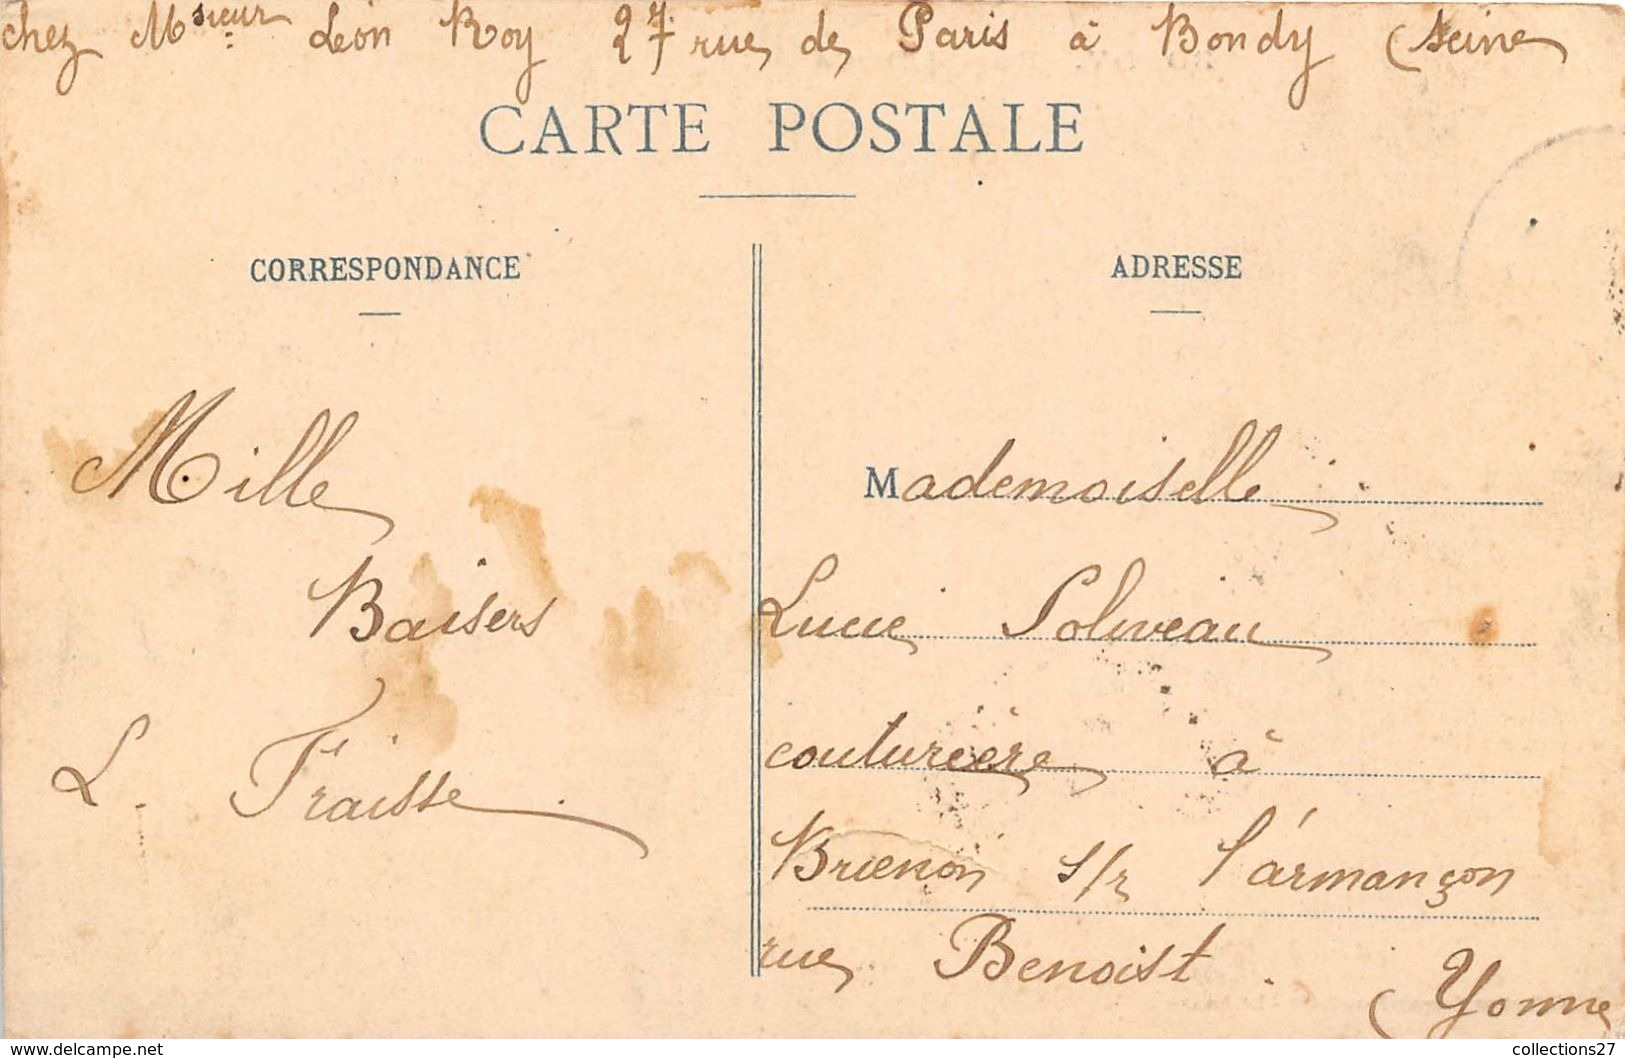 chez Msieur Léon Roy 27 rue de Paris à Bondy (Seine
CARTE POSTALE
CORRESPONDANCE
ADRESSE
Mille
Baisers
L. Fraisse.
Mademoiselle
Lucie Soliveau
couturière à
Brienon s/r l'armançon
rue Benoist.
(Yonne
www.delcampe.net
collections27